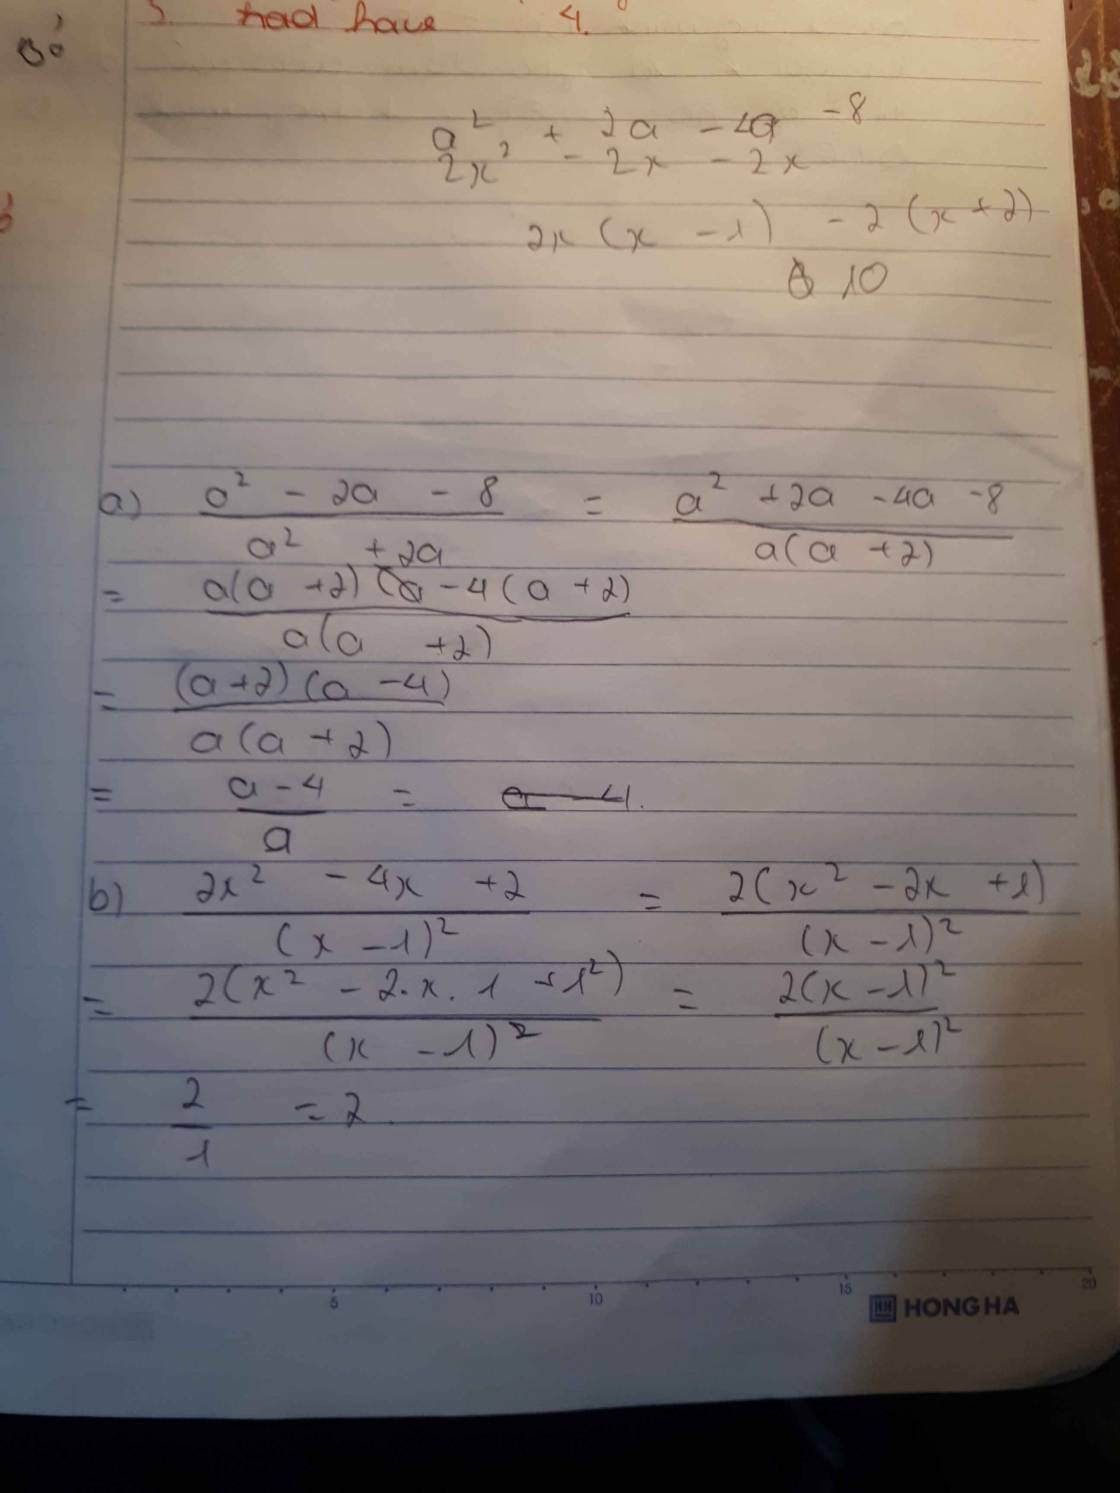 had have 4.
a² + 2a - 4a - 8
2x² - 2x - 2x
2x (x - 1) - 2 (x + 2)
10
a) a² - 2a - 8 / a² + 2a = a² + 2a - 4a - 8 / a(a + 2)
= a(a + 2) - 4(a + 2) / a(a + 2)
= (a + 2)(a - 4) / a(a + 2)
= a - 4 / a = a - 4.
b) 2x² - 4x + 2 / (x - 1)² = 2(x² - 2x + 1) / (x - 1)²
= 2(x² - 2.x.1 + 1²) / (x - 1)² = 2(x - 1)² / (x - 1)²
= 2 / 1 = 2
5 10 15 20
HONG HA